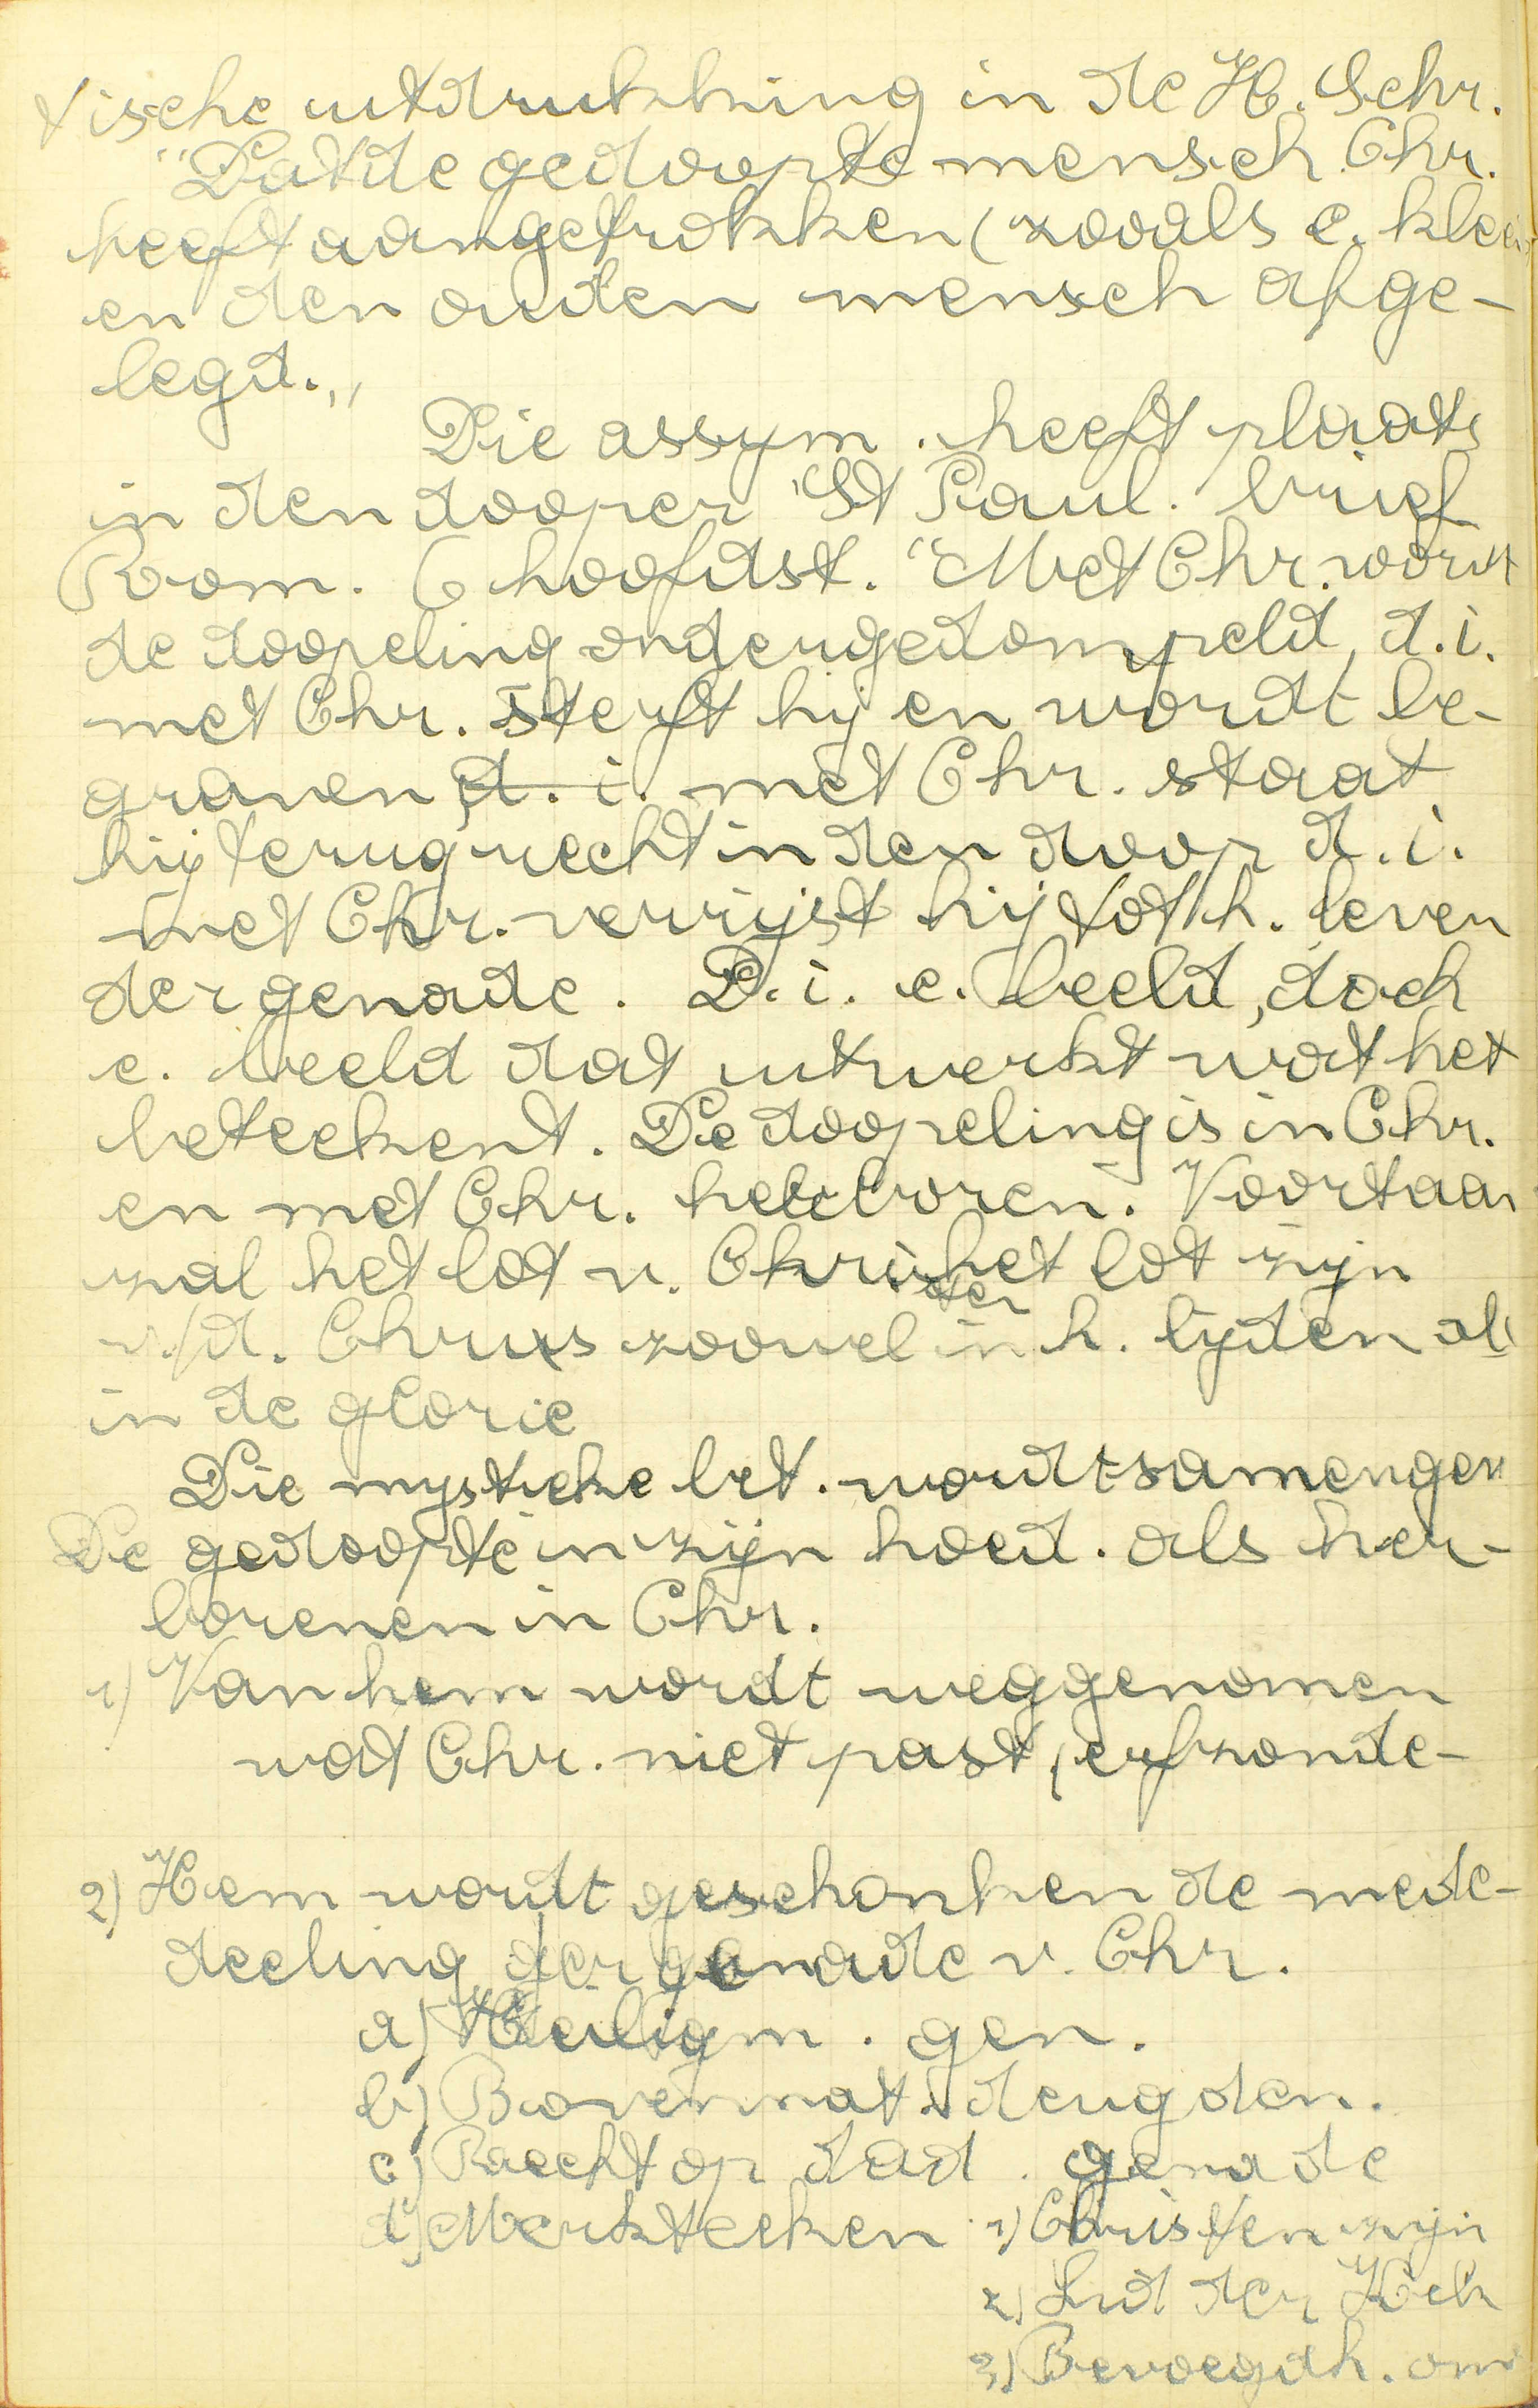 tische uitdrukking in de H. Schr.
"Dat de gedoopte mensch Chr.
heeft aangetrokken (zooals e. kleed
en den ouden mensch afge-
legd.„
Die assym. heeft plaats
in den dooper St Paul. brief
Rom. 6 hoofdst. "Met Chr. wordt
de doopeling ondergedompeld, d.i.
met Chr. sterft hij en wordt be-
graven, d. i. met Chr. staat
hij terug recht in den doop d. i.
met Chr. verrijst hij tot h. leven
der genade. D. i. e. beeld, doch
e. beeld dat uitwerkt wat het
beteekent. De doopeling is in Chr.
en met Chr. herboren. Voortaan
zal het lot v. Christen het lot zijn
v./d. Chrus zoowel in h. lijden als
in de glorie
Die mystieke bet. wordt samengev
De gedoopte in zijn hoed. als her-
borenen in Chr.
1) Van hem wordt weggenomen
wat Chr. niet past, erfzonde-
2) Hem wordt geschonken de mede-
deeling der genade v. Chr.
a) Heiligm. gen.
b) Bovennat. deugden.
c) Recht op dad. genade
d) Merkteeken 1) Christen zijn
2) Lid der Kerk
3) Bevoegdh. om